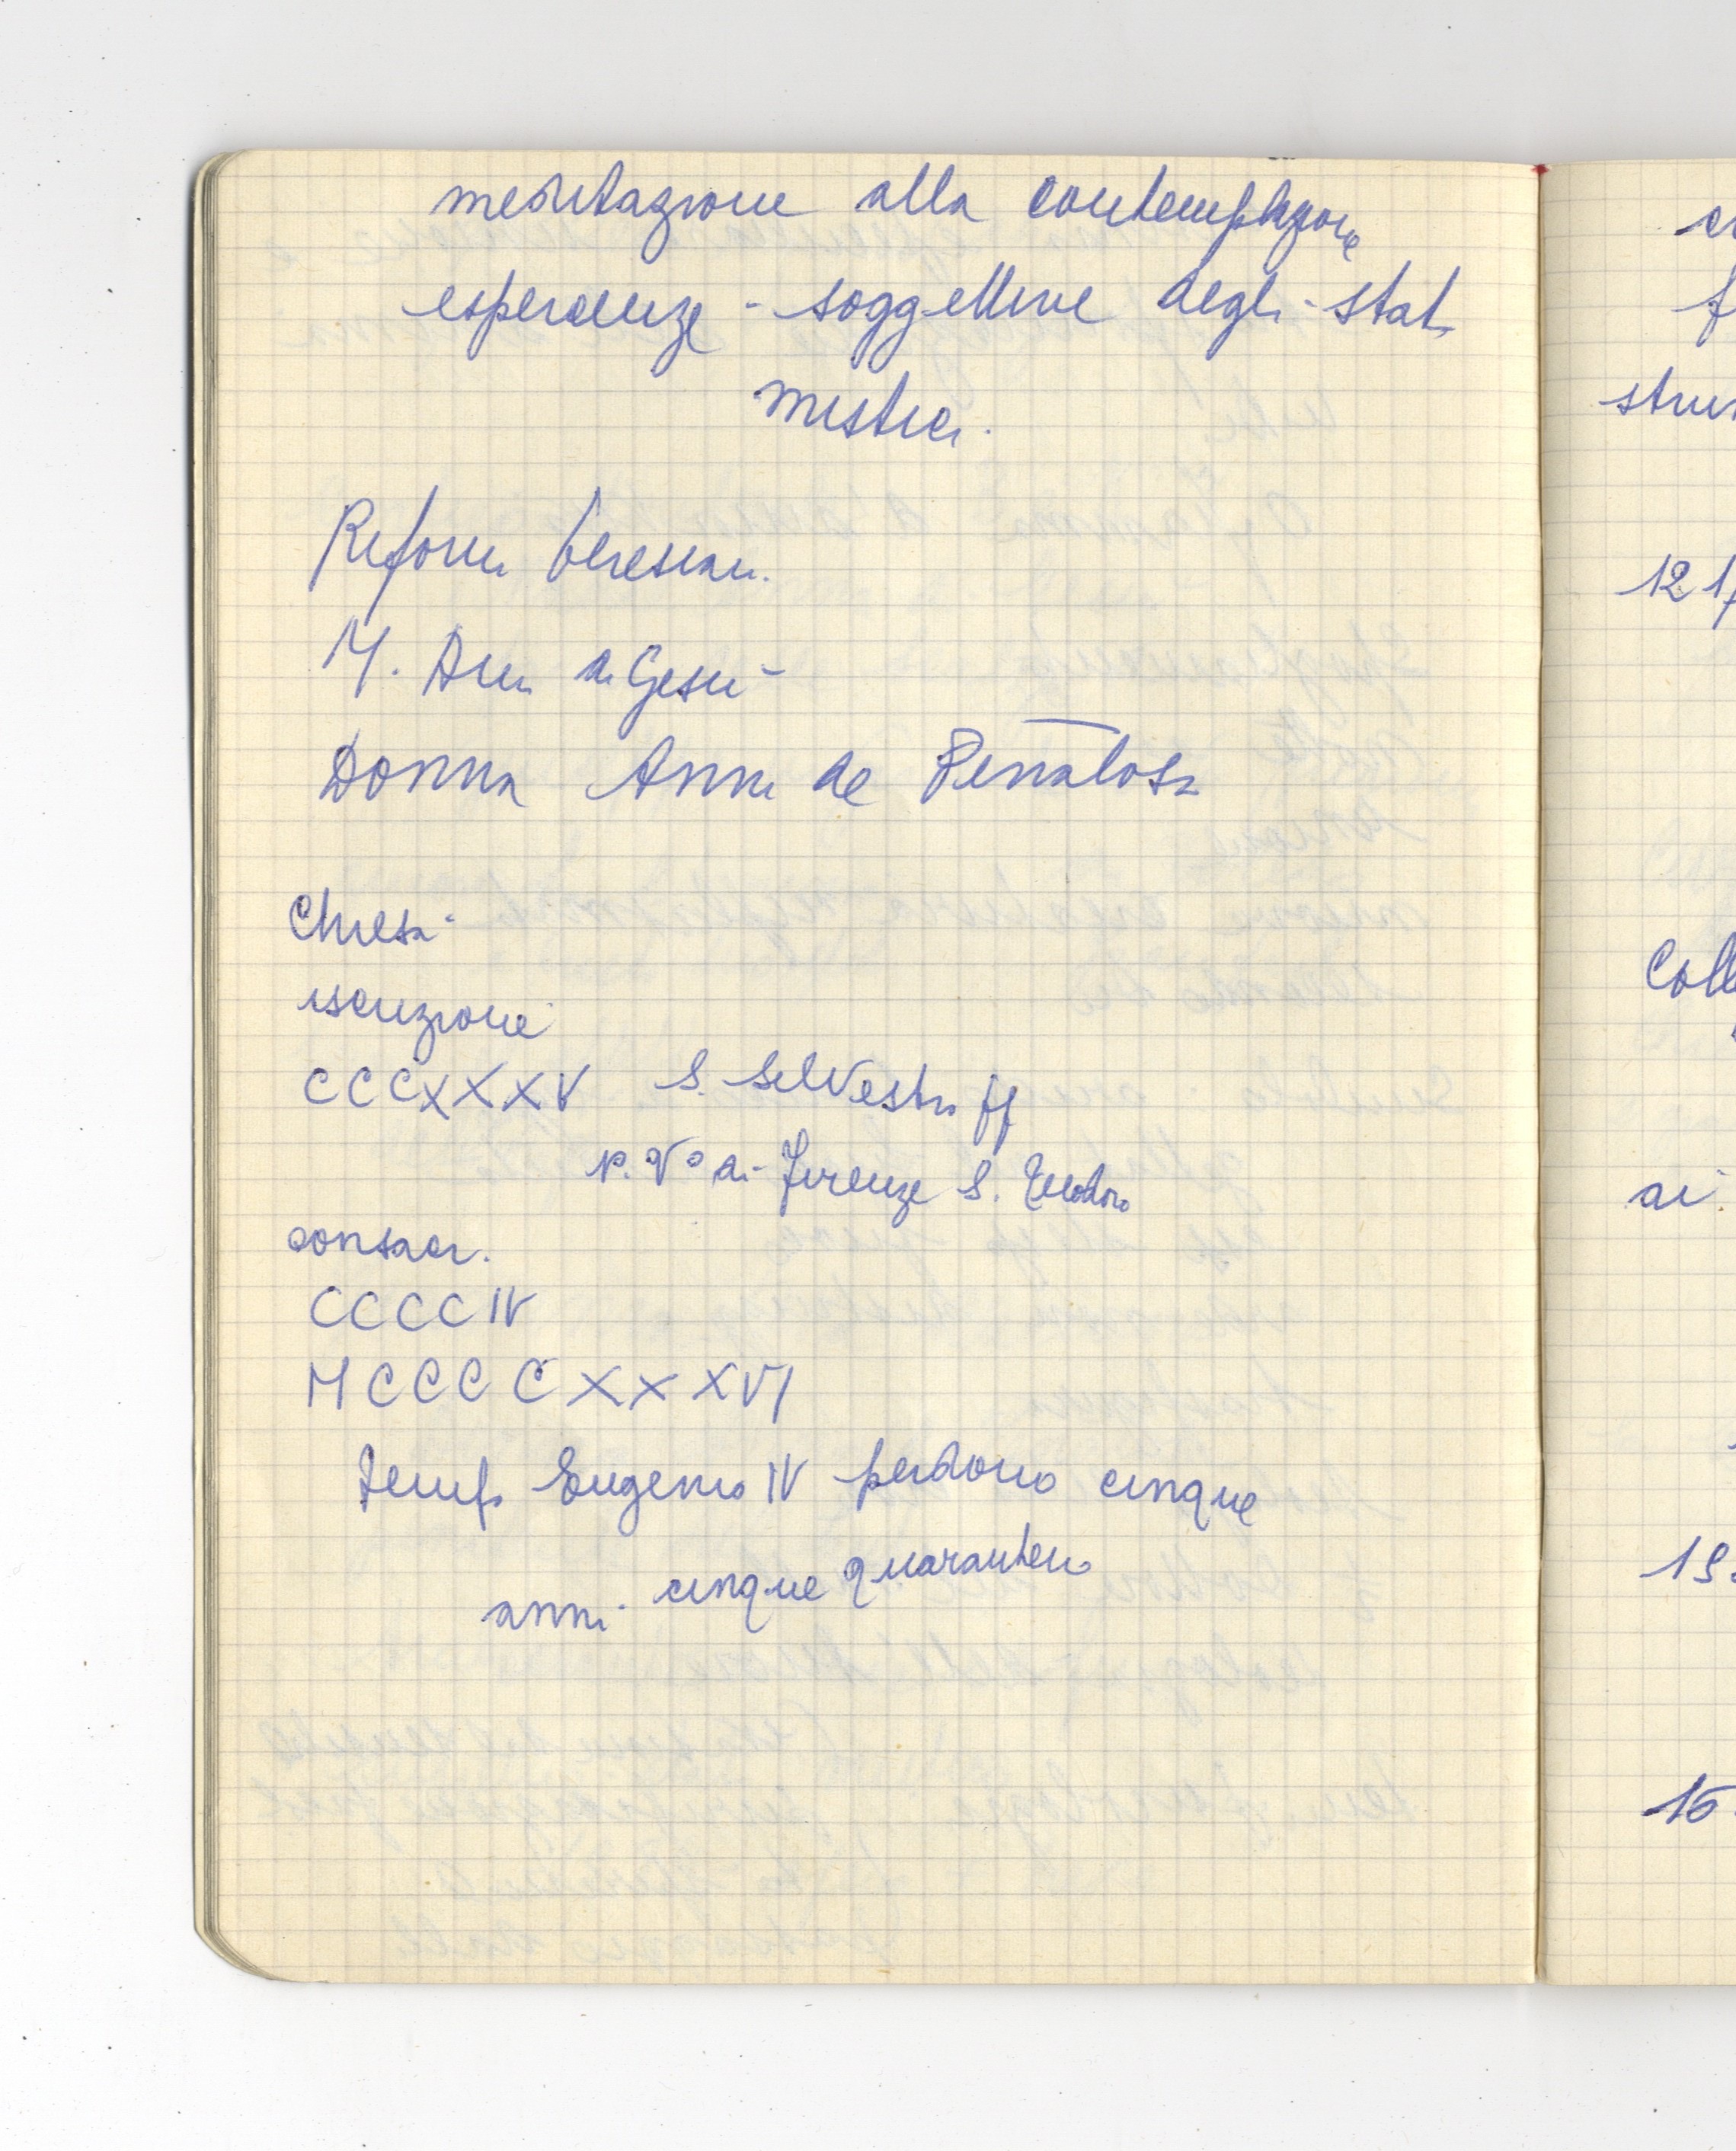 meditazione alla contemplazione
esperienze - soggettive degli stati
mistici.
Riforma teresiana.
M. Anna di Gesù
Donna Anna de Peñalosa
Chiesa
iscrizione
CCCXXXV S. Silvestro
di Firenze S. Teodoro
consacr.
CCCCIV
MCCCCXXXVI
Eugenio IV perdono cinque
anni cinque quaranten
Coll
ai